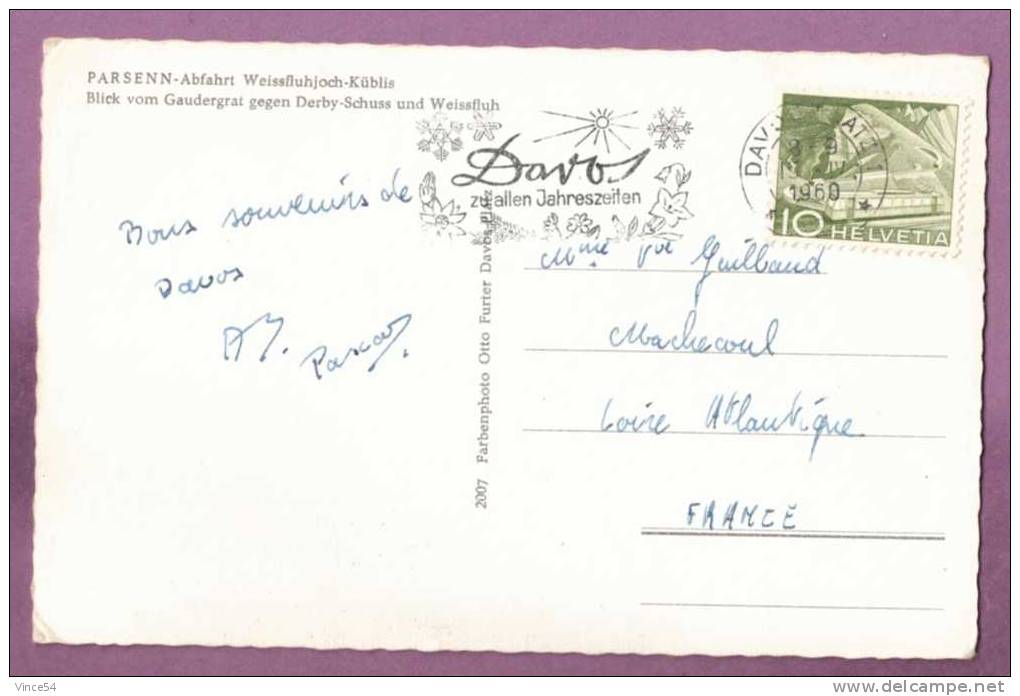 PARSENN-Abfahrt Weissfluhjoch-Küblis
Blick vom Gaudergrat gegen Derby-Schuss und Weissfluh
Davos
zu allen Jahreszeiten
DAVOS
8-9
IV.
1960
10 HELVETIA
Bons souvenirs de
Davos
2007 Farbenphoto Otto Furter Davos-Platz
Mme Vve Guilbaud
Machecoul
Loire Atlantique
FRANCE
Vince54
delcampe.net